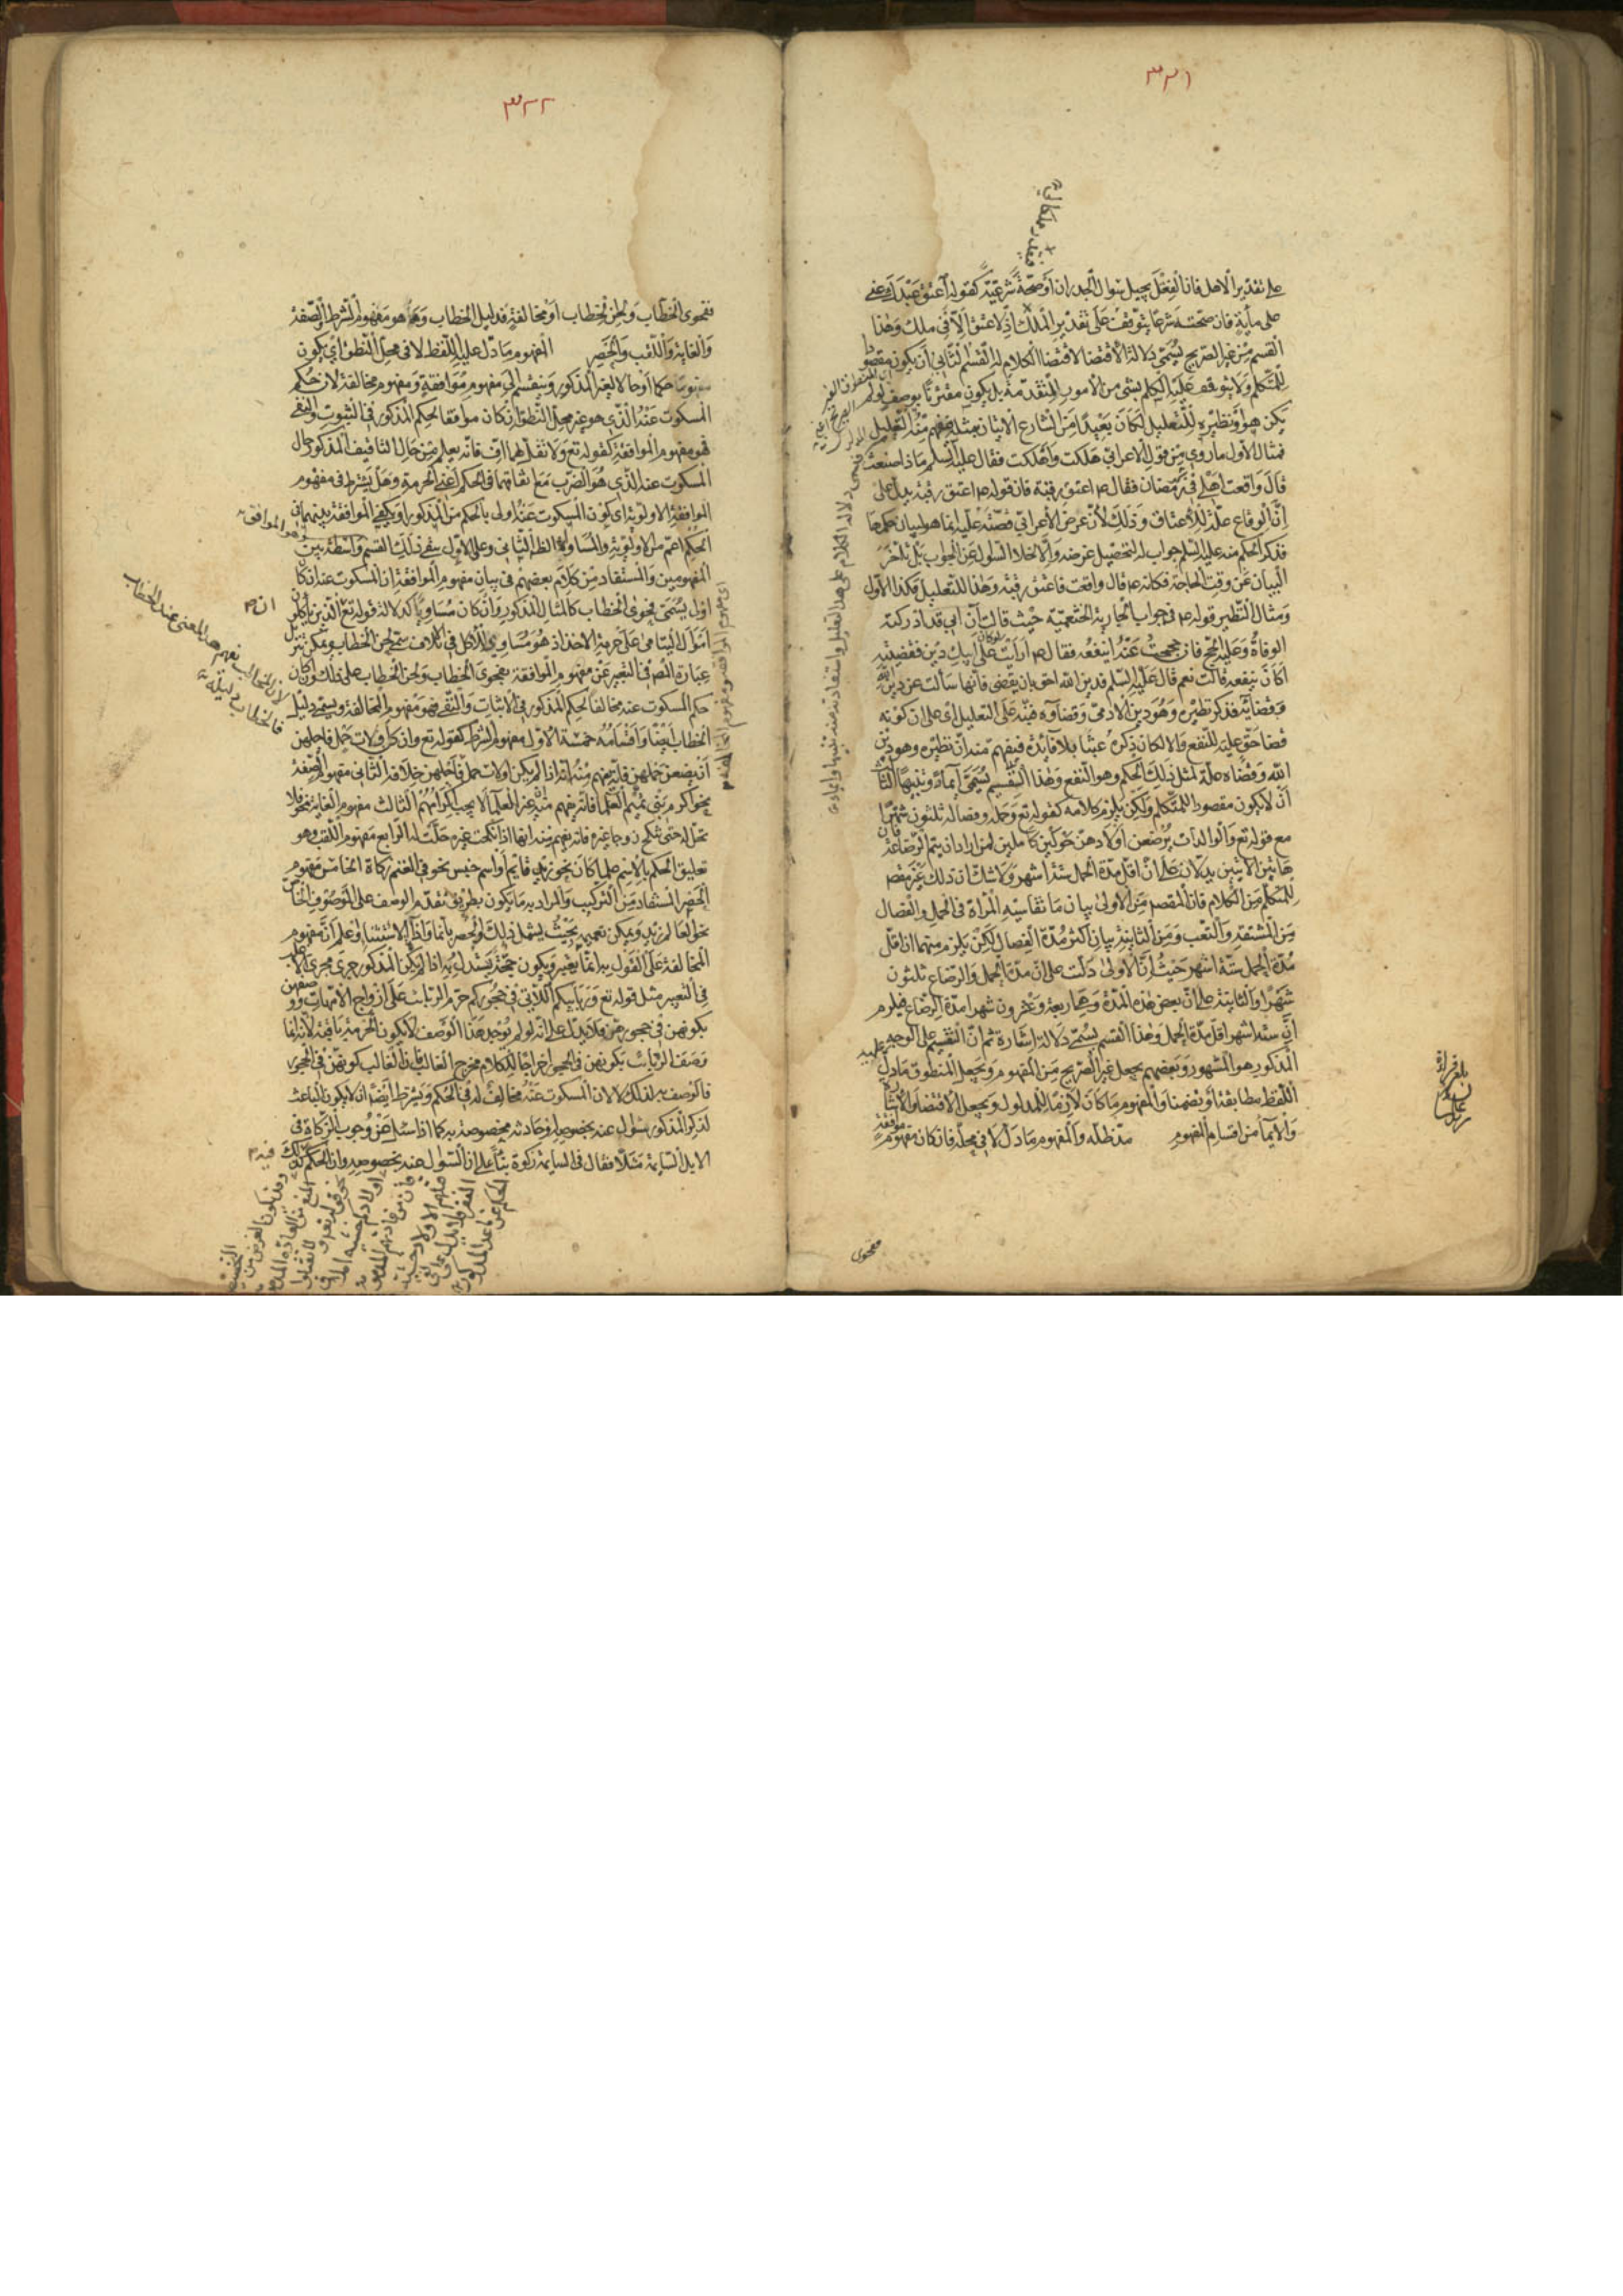 ٣٢١
على تقدير الاهل فان العقل يحيل سوال الجدران او صحة شرعية كقوله اعتق عبدك عني
على مأية فان صحته شرعا يتوقف على تقدير الملك اذ لا عتق الا في ملك وهذا
القسم من غير الصريح يسمى دلالة الاقتضا لاقتضا الكلام له القسم الثاني ان يكون مقصود
للمتكلم ولا يتوقف عليه الحكم بشئ من الامور المتقدمة بل يكون مقترنا بوصف لو لم
يكن هو او نظيره للتعليل لكان بعيدا من الشارع الاتيان بمثله فيفهم منه التعليل
فمثال الاول ما روي من قول الاعرابي هلكت واهلكت فقال عليه السلم ماذا صنعت
قال واقعت اهلي في رمضان فقال ص اعتق رقبة فان قوله ص اعتق رقبة يدل على
ان الوقاع علة للاعتاق وذلك لان غرض الاعرابي قصته عليه انما هو لبيان حكمها
فذكر الحكم منه عليه السلم جواب له لتحصيل غرضه والا لاخلا السؤال عن الجواب بل تأخر
البيان عن وقت الحاجة فكانه ص قال واقعت فاعتق رقبة وهذا للتعليل فكذا الاول
ومثال النظير قوله ص في جواب الجارية الخثعمية حيث قالت ان ابي قد ادركته
الوفاة وعليه الحج فان حججت عنه اينفعه فقال ص ارايت لو كان على ابيك دين فقضيته
اكان ينفعه قالت نعم قال عليه السلم فدين الله احق بان يقضى فانها سالت عن دين الله
وقضائه فذكر نظيره وهو دين الادمي وقضاوه فنبه على التعليل اي على ان كونه
قضا حق علية للنفع والا لكان ذكره عبثا بلا فائدة فيفهم منه ان نظيره وهو دين
الله وقضاه علة لمثل ذلك الحكم وهو النفع وهذا القسم يسمى ايماء وتنبيها الثالث
ان لا يكون مقصود المتكلم ولكن يلزم كلامه كقوله تع وحمله وفصاله ثلثون شهرا
مع قوله تع والوالدات يرضعن اولادهن حولين كاملين لمن اراد ان يتم الرضاعة فان
هاتين الايتين يدلان على ان اقل مدة الحمل ستة اشهر ولا شك ان ذلك غير مقصود
للمتكلم من الكلام فان المقصد من الاولى بيان ما تقاسيه المراة في الحمل والفصال
من المشقة والتعب ومن الثانية بيان اكثر مدة الفصال لكن يلزم منهما ان اقل
مدة الحمل ستة اشهر حيث ان الاولى دلت على ان مدة الحمل والرضاع ثلثون
شهرا والثانية على ان بعض هذه المدة وهي اربعة وعشرون شهرا مدة الرضاع فيلزم
ان ستة اشهر اقل مدة الحمل وهذا القسم يسمى دلالة اشارة ثم ان التقسيم على الوجه
المذكور هو المشهور وبعضهم يجعل غير الصريح من المفهوم ويجعل المنطوق ما دل عليه
اللفظ مطابقة او تضمنا والمفهوم ما كان لازما للمدلول ويجعل الاقتضا والاشارة
والايماء من اقسام المفهوم مد ظله والمفهوم ما دل لا في محله فان كان مفهوم موافقة
ففحوى
٣٢٢
ففحوى الخطاب ولحن الخطاب او مخالفة فدليل الخطاب وهو مفهوم الشرط والصفة
والغاية واللقب والحصر المفهوم ما دل عليه اللفظ لا في محل النطق اي يكون
حكما او حالا لغير المذكور وينقسم الى مفهوم موافقة ومفهوم مخالفة لان حكم
المسكوت عنه الذي هو غير محل النطق ان كان موافقا لحكم المذكور في الثبوت والنفي
فهو مفهوم الموافقة كقوله تع ولا تقل لهما اف فانه يعلم من حال التافيف المذكور حال
المسكوت عنه الذي هو الضرب مع اتفاقهما في الحكم اعني الحرمة وهل يشترط في مفهوم
الموافقة الاولوية اي كون المسكوت عنه اولى بالحكم من المذكور او يكفي الموافقة بينهما في
الحكم اعم من الاولوية والمساواة الظ الثاني وعلى الاول يبقى ذلك القسم واسطة بين
المفهومين والمستفاد من كلام بعضهم في بيان مفهوم الموافقة ان المسكوت عنه ان كان
اولى يسمى فحوى الخطاب كالمثال المذكور وان كان مساويا كدلالة قوله تع الذين ياكلون
اموال اليتامى على حرمة الاخذ اذ هو مساوي للاكل في اتلاف سمي لحن الخطاب ويمكن تنزيل
عبارة النص في التعبير عن مفهوم الموافقة بفحوى الخطاب ولحن الخطاب على ذلك وان كان
حكم المسكوت عنه مخالفا لحكم المذكور في الاثبات والنفي فهو مفهوم المخالفة ويسمى دليل
الخطاب ايضا واقسامه خمسة الاول مفهوم الشرط كقوله تع وان كن اولات حمل فاجلهن
ان يضعن حملهن فانه يفهم منه انه اذا لم يكن اولات حمل فاجلهن خلافه الثاني مفهوم الصفة
نحو اكرم بني تميم العلما فانه يفهم منه غير العلما لا يجب اكرامهم الثالث مفهوم الغاية نحو فلا
تحل له حتى تنكح زوجا غيره فانه يفهم منه انها اذا نكحت غيره حلت له الرابع مفهوم اللقب وهو
تعليق الحكم بالاسم علما كان نحو زيد قايم او اسم جنس نحو في الغنم زكاة الخامس مفهوم
الحصر المستفاد من التركيب والمراد به ما يكون بطريق تقدم الوصف على الموصوف الخاص
نحو العالم زيد ويمكن تعميمه بحيث يشمل ذلك والحصر بانما واداة الاستثنا واعلم ان مفهوم
المخالفة على القول به انما يعتبر ويكون حجة يستدل به اذا لم يكن المذكور جرى مجرى الاغلب
في التعبير مثل قوله تع وربائبكم اللاتي في حجوركم حرم الربائب على ازواج الامهات ووصفهن
بكونهن في حجورهن فلا يدل على انه لو لم يوجد هذا الوصف لا يكون الحرمة باقية لانه انما
وصف الربائب بكونهن في الحجور اخراجا للكلام مخرج الغالب فان الغالب كونهن في الحجور
فالوصف به لذلك لا لان المسكوت عنه مخالف له في الحكم ويشترط ايضا ان لا يكون الباعث
لذكر المذكور سؤال عنه بخصوصه او حادثة مخصوصة به كما اذا سئل عن وجوب الزكاة في
الابل السايمة مثلا فقال في السايمة زكوة بناء على ان السؤال عنه بخصوصه وان الحكم كذلك